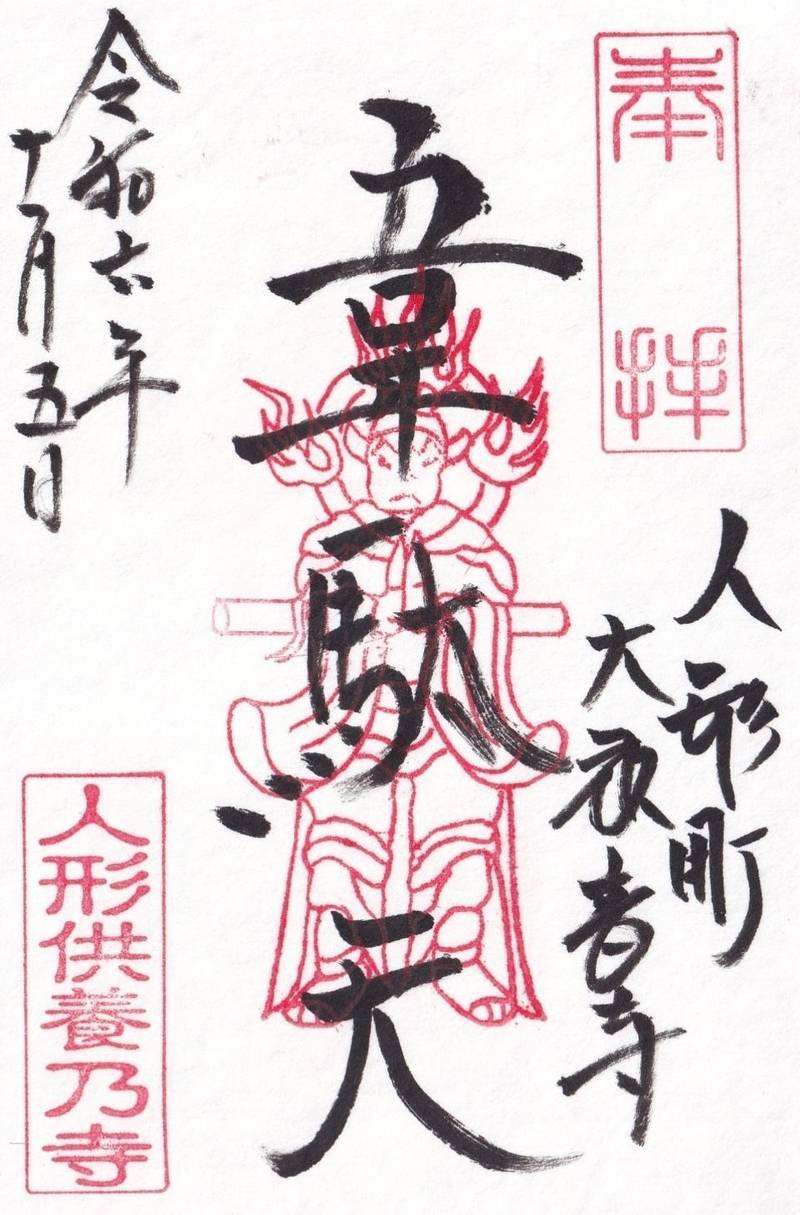 奉拝
人形町
大観音寺
韋駄天
令和六年
十一月五日
人形供養乃寺